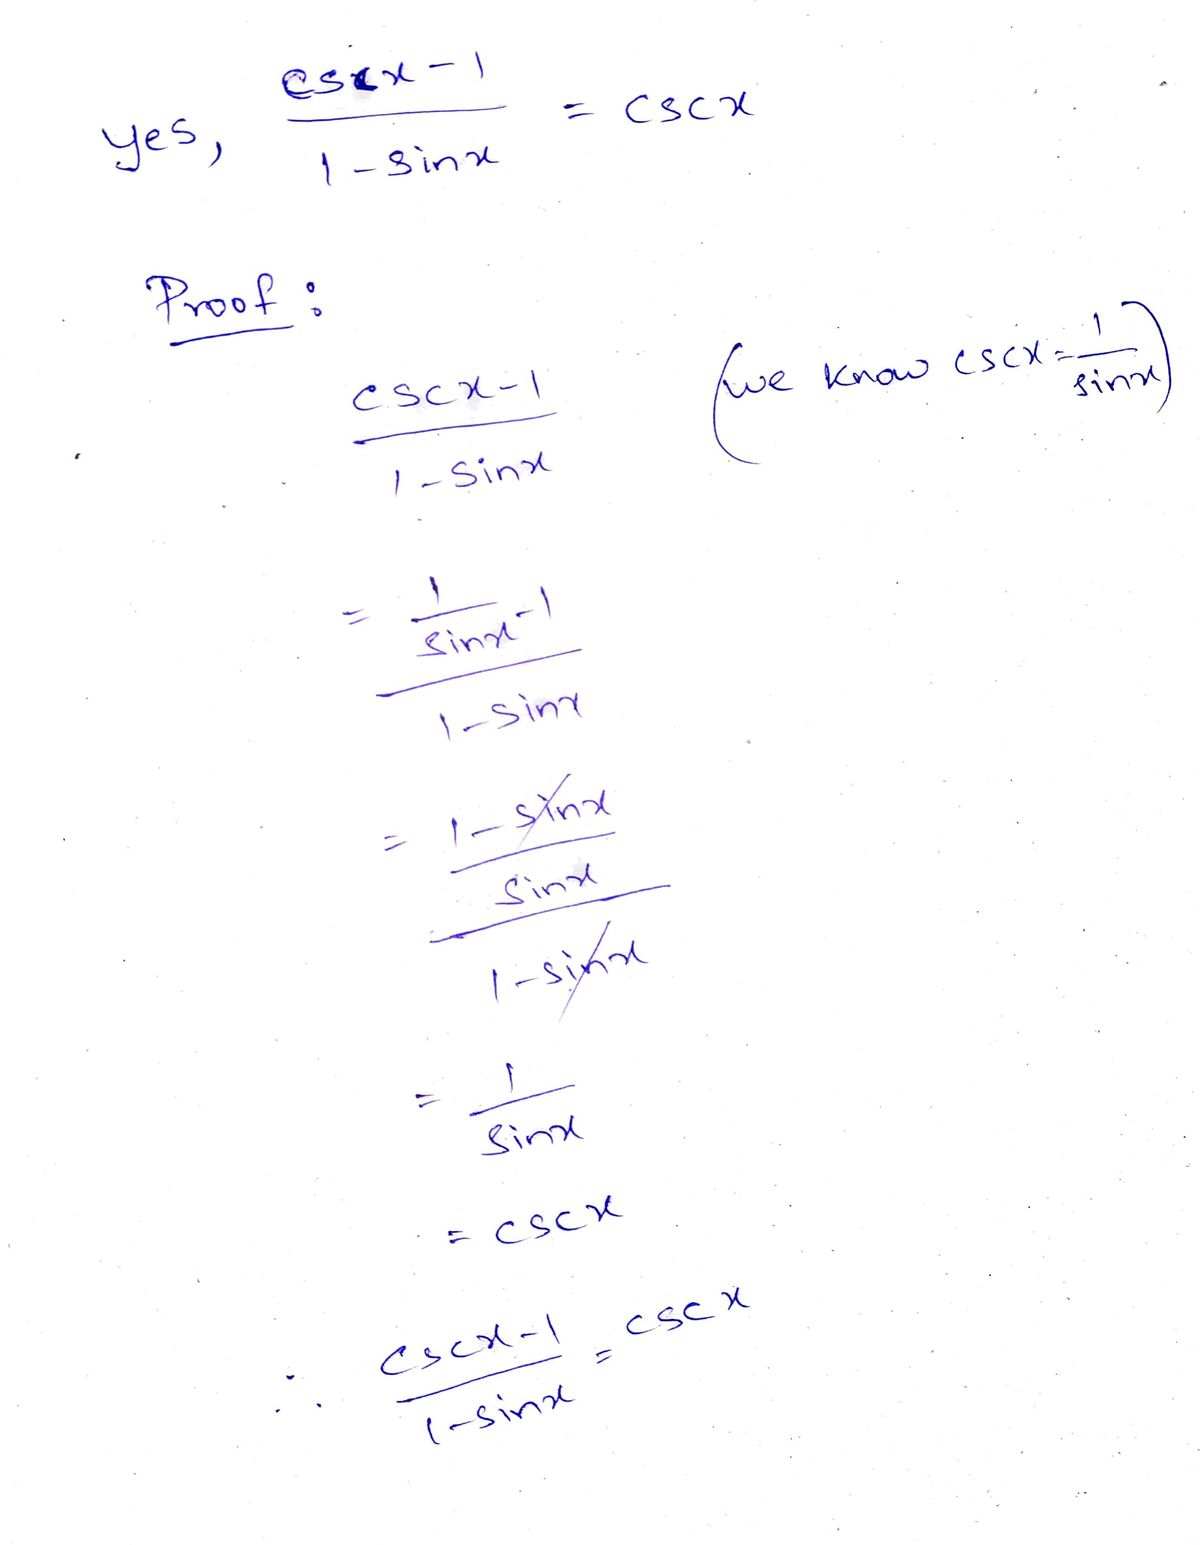 yes, (cscx - 1)/(1 - sinx) = cscx
Proof :
(cscx - 1)/(1 - sinx) (we know cscx = 1/sinx)
= (1/sinx - 1)/(1 - sinx)
= ((1 - sinx)/sinx)/(1 - sinx)
= 1/sinx
= cscx
∴ (cscx - 1)/(1 - sinx) = cscx